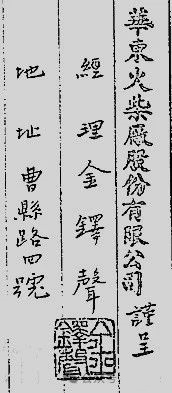 華東火柴厰股份有限公司 謹呈
經理金鐸聲
地址曹縣路四號